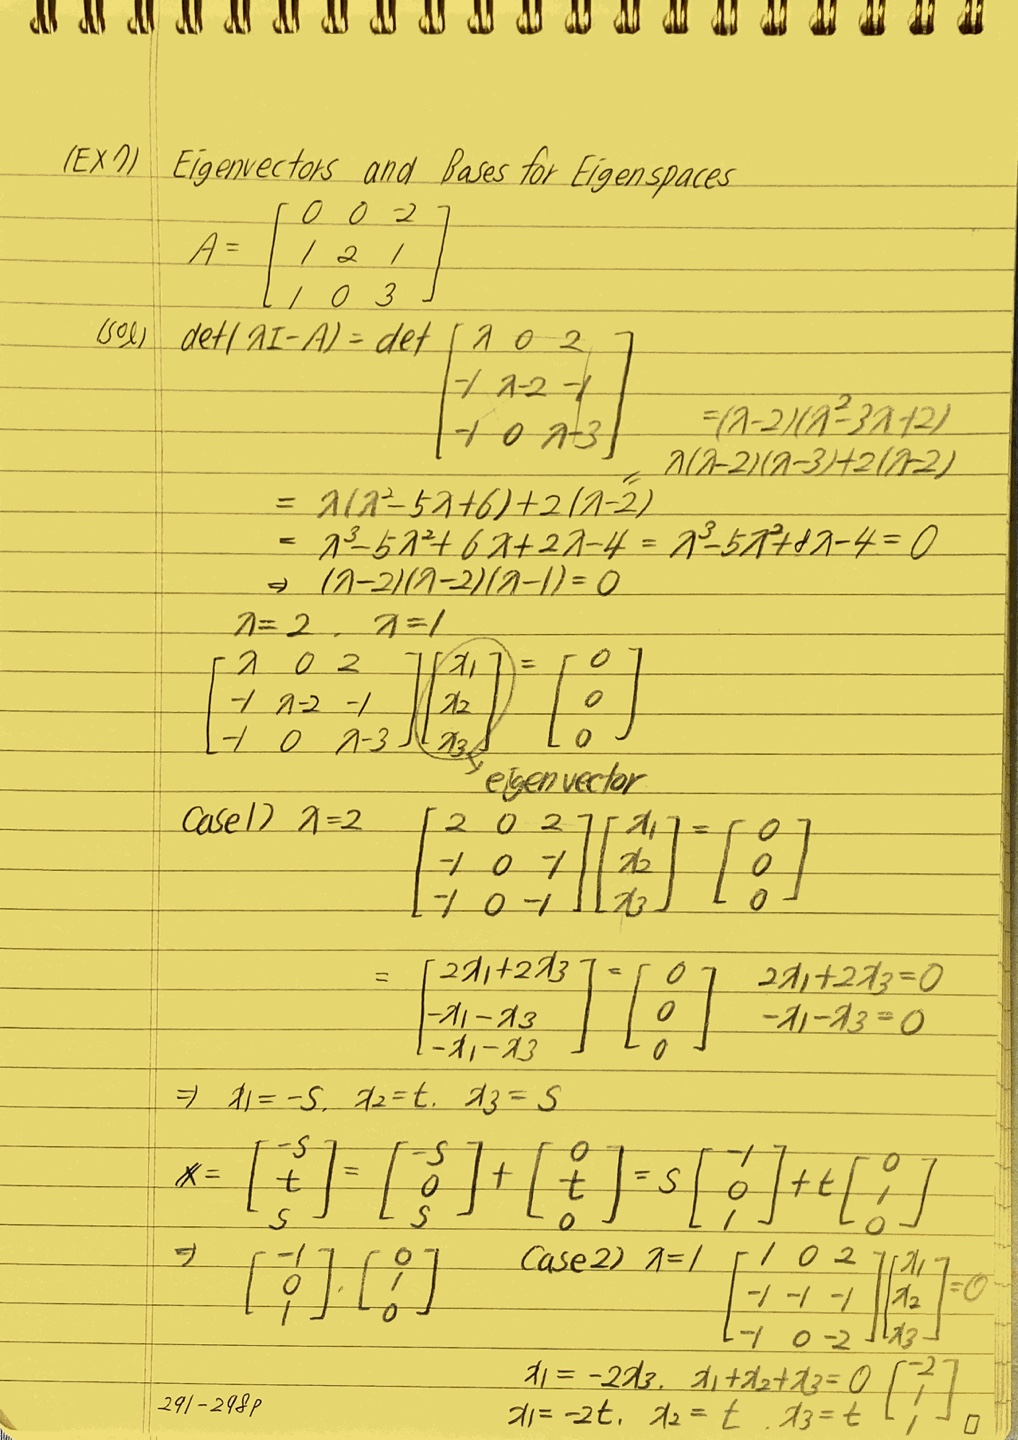 (EX7) Eigenvectors and Bases for Eigenspaces
A = [ 0 0 -2
1 2 1
1 0 3 ]
(sol) det(λI-A) = det [ λ 0 2
-1 λ-2 -1
-1 0 λ-3 ]
=(λ-2)(λ²-3λ+2)
λ(λ-2)(λ-3)+2(λ-2)
= λ(λ²-5λ+6)+2(λ-2)
= λ³-5λ²+6λ+2λ-4 = λ³-5λ²+8λ-4=0
⇒ (λ-2)(λ-2)(λ-1)=0
λ=2 . λ=1
[ λ 0 2 ] [ x1 ] = [ 0 ]
[ -1 λ-2 -1 ] [ x2 ] [ 0 ]
[ -1 0 λ-3 ] [ x3 ] [ 0 ]
eigenvector
Case1) λ=2 [ 2 0 2 ] [ x1 ] = [ 0 ]
[ -1 0 -1 ] [ x2 ] [ 0 ]
[ -1 0 -1 ] [ x3 ] [ 0 ]
= [ 2x1+2x3 ] = [ 0 ] 2x1+2x3=0
[ -x1-x3 ] [ 0 ] -x1-x3=0
[ -x1-x3 ] [ 0 ]
⇒ x1=-s. x2=t. x3=s
x = [ -s ] = [ -s ] + [ 0 ] = s [ -1 ] + t [ 0 ]
[ t ] [ 0 ] [ t ] [ 0 ] [ 1 ]
[ s ] [ s ] [ 0 ] [ 1 ] [ 0 ]
⇒ [ -1 ] . [ 0 ]
[ 0 ] [ 1 ]
[ 1 ] [ 0 ]
Case2) λ=1 [ 1 0 2 ] [ x1 ] =0
[ -1 -1 -1 ] [ x2 ]
[ -1 0 -2 ] [ x3 ]
x1 = -2x3. x1+x2+x3=0 [ -2
x1=-2t. x2=t . x3=t 1
1 ] □
291-298p